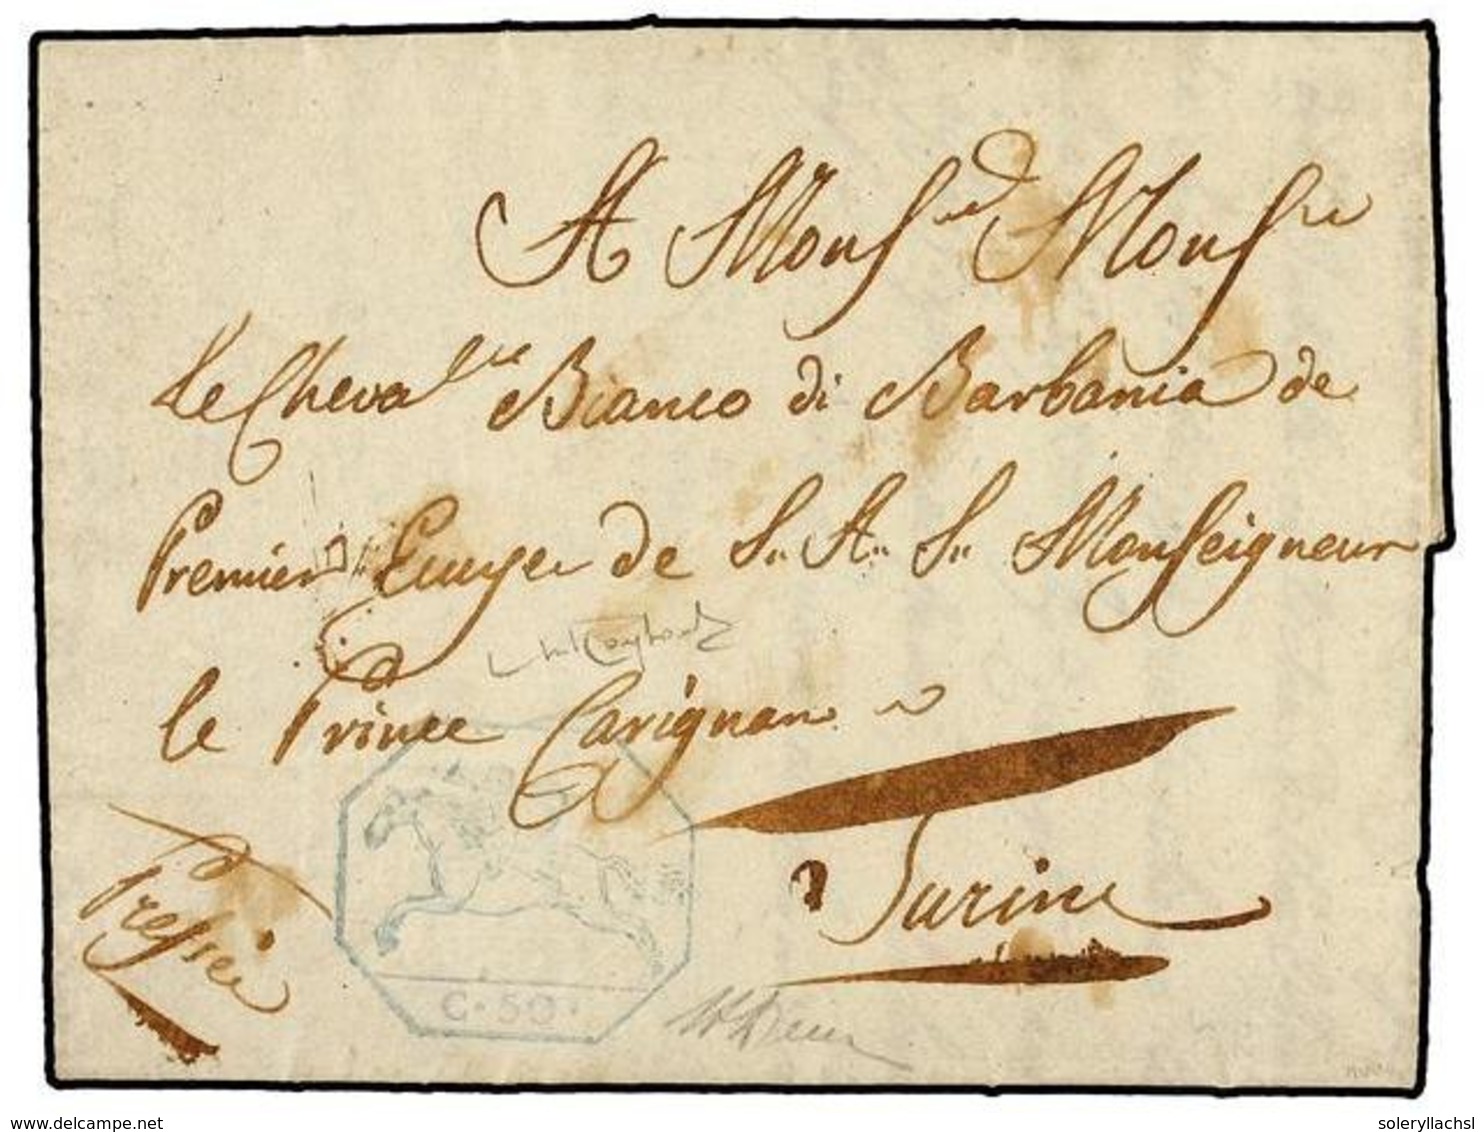 A Monsr. Monsr.
Le Chevalier Bianco di Barbania de
Premier Ecuyer de S. A. S. Monseigneur
le Prince Carignan
Pressée
à Turin
C. 50.
delcampe.net
soleryllachsl